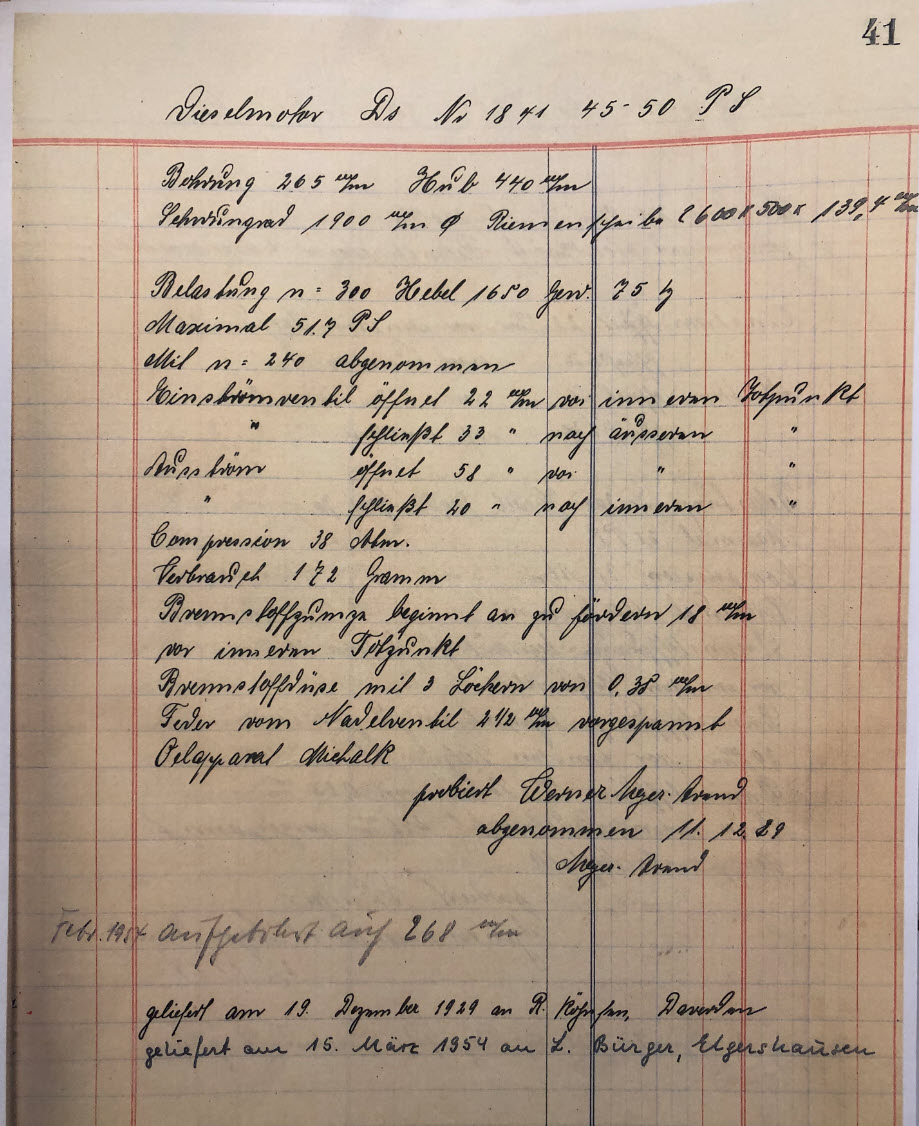 41
Dieselmotor Ds Nr 1841 45-50 PS
Bohrung 265 m/m Hub 440 m/m
Schwungrad 1900 m/m Ø Riemenscheibe 600 x 500 x 139,4 m/m
Belastung n = 300 Hebel 1650 Gew. 75 kg
Maximal 51.7 PS
Mit n = 240 abgenommen
Einströmventil öffnet 22 m/m vor inneren Totpunkt
" schließt 33 " nach äusseren "
Ausström öffnet 58 " vor " "
" schließt 20 " nach inneren "
Compression 38 Atm.
Verbrauch 172 Gramm
Brennstoffpumpe beginnt an zu fördern 18 m/m
vor inneren Totpunkt
Brennstoffdüse mit 3 Löchern von 0,38 m/m
Feder vom Nadelventil 2 1/2 m/m vorgespannt
Oelapparat Michalk
probiert Werner Meyer-
abgenommen 11. 12. 29
Meyer-
Febr. 1954 aufgebohrt auf 268 m/m
geliefert am 19. Dezember 1929 an R. Daverden
geliefert am 15. März 1954 an L. Bürger, Elgershausen